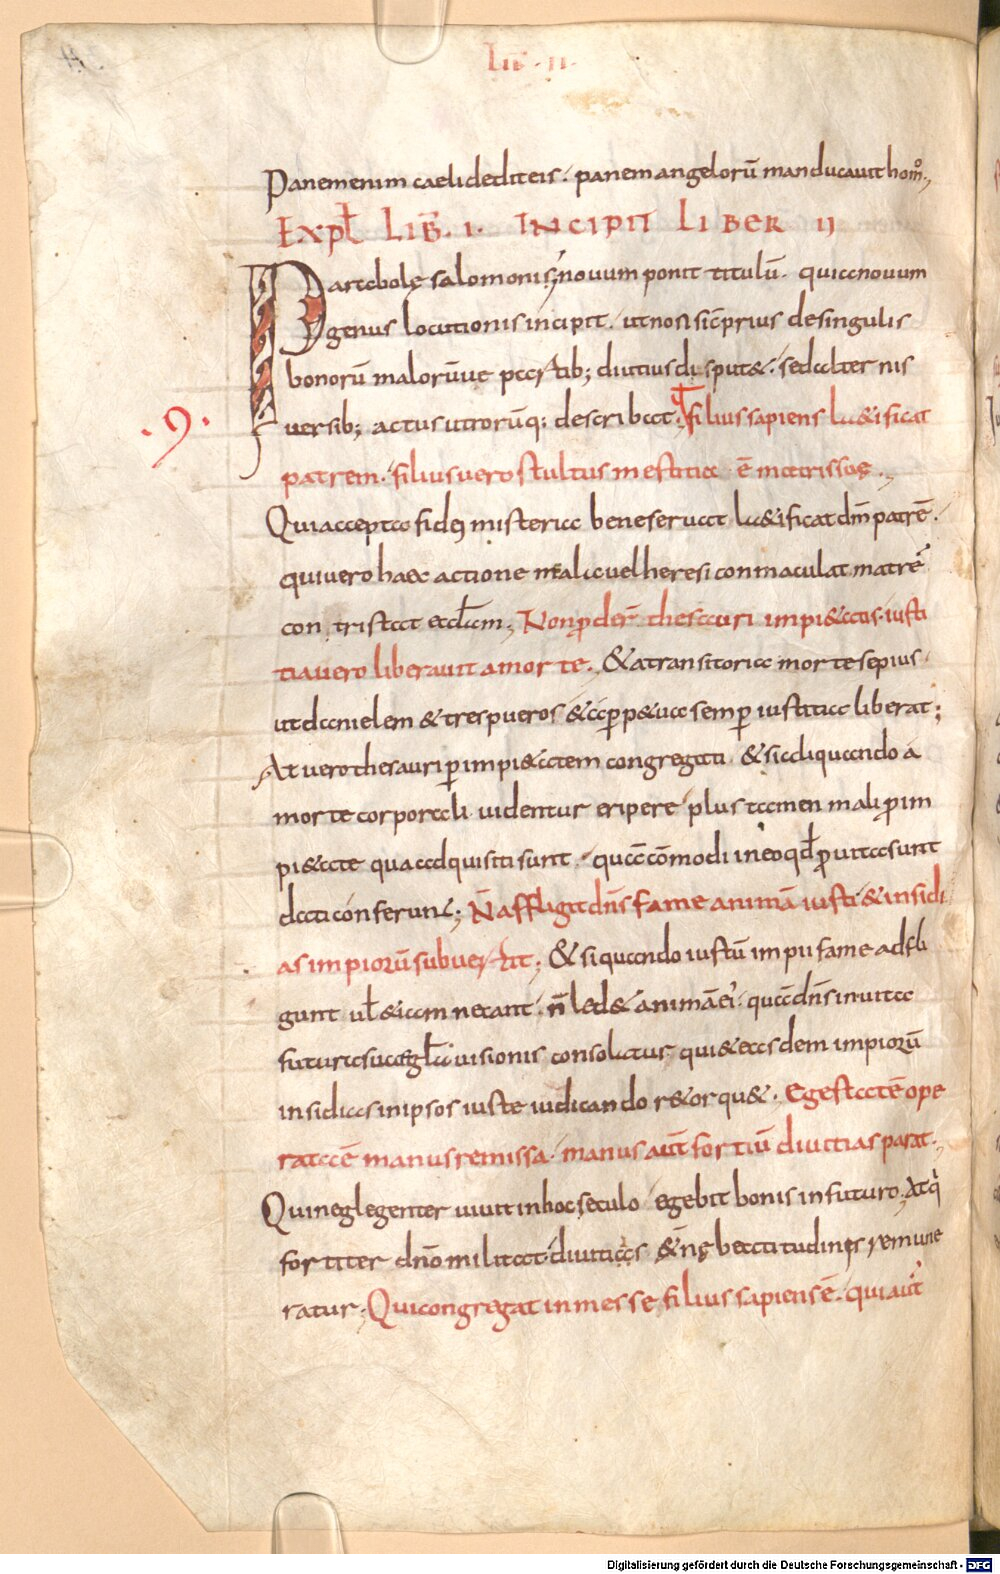 Lib · II ·
Panem enim caeli dedit eis · panem angelorū manducauit homo,
EXPL LIB · I · INCIPIT LIBER II
Parabolę salomonis; nouum ponit titulū · quia nouum
genus locutionis incipit · ut non sic prius de singulis
bonorū malorūue partib; diutius disput& · sed alternis
uersib; actus utrorūq; describat; filius sapiens l&ificat
· 9 ·
patrem · filius uero stultus mestitia ē matris suę ·,
Qui accepta fidei misteria bene seruat l&ificat dm̄ patrē ·
qui uero haec actione mala uel heresi conmaculat matrē
contristat eccl̄am; Non ꝓder̄ thesauri impi&atis · iusti
tia uero liberauit a morte · & a transitoria morte sepius
ut danielem & tres pueros & a ꝑp&ua semꝑ iustitia liberat;
At uero thesauri ꝑ impi&atem congregati & si aliquando a
morte corporali uidentur eripere plus tamen mali ꝓ im
pi&ate qua adquisiti sunt · quā cōmodi in eo qd̄ ꝓ uita sunt
dati conferunt; N̄ affligit dn̄s fame animā iusti & insidi
as impiorū subuertit; & si quando iustū impii fame adfli
gunt ul̄ &iam necant · n̄ led& animā ei · quā dn̄s in uita
futura suae gl̄ae uisionis consolatur qui & easdem impiorū
insidias in ipsos iuste iudicando r&orqu& · Egestatē ope
ratā ē manus remissa · manus aut̄ fortiū diuitias parat ·,
Qui neglegenter uiuit in hoc sęculo egebit bonis in futuro; At q
fortiter dn̄o militat · diuitiis &n̄ę beatitudinis remune
ratur; Qui congregat in messe filius sapiens ē · qui aut̄
Digitalisierung gefördert durch die Deutsche Forschungsgemeinschaft - DFG